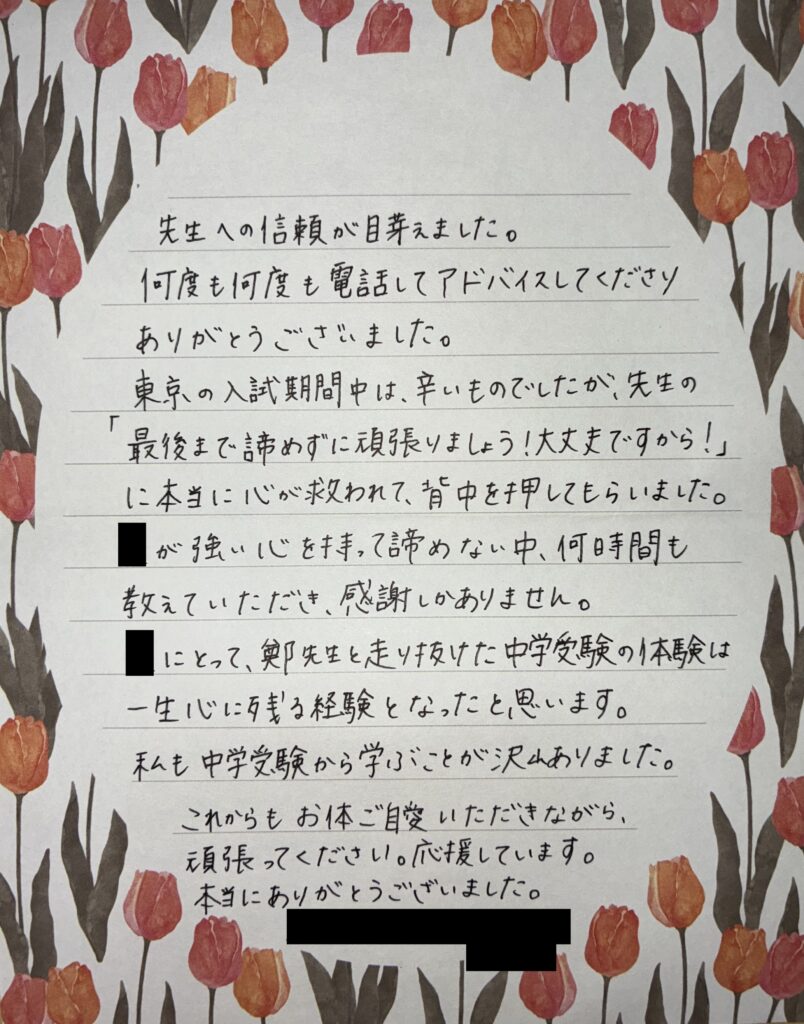 先生への信頼が目芽えました。
何度も何度も電話してアドバイスしてくださり
ありがとうございました。
東京の入試期間中は、辛いものでしたが、先生の
「最後まで諦めずに頑張りましょう！大丈夫ですから！」
に本当に心が救われて、背中を押してもらいました。
が強い心を持って諦めない中、何時間も
教えていただき、感謝しかありません。
にとって、鄭先生と走り抜けた中学受験の体験は
一生心に残る経験となったと思います。
私も中学受験から学ぶことが沢山ありました。
これからもお体ご自愛いただきながら、
頑張ってください。応援しています。
本当にありがとうございました。